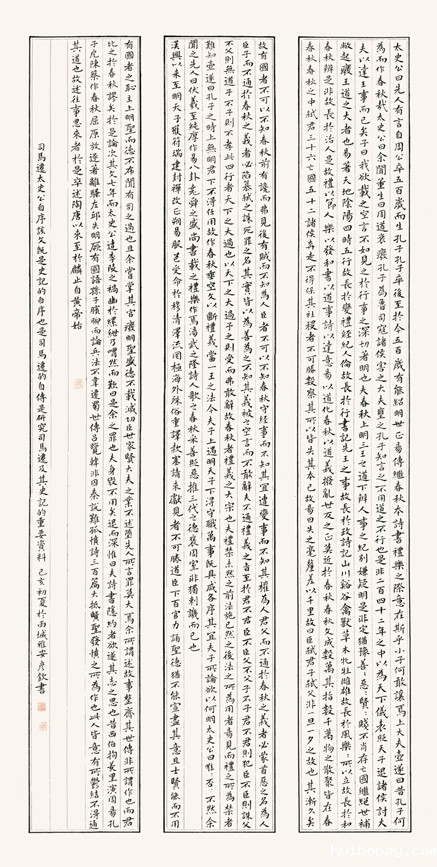 太史公曰先人有言自周公卒五百歲而生孔子孔子卒後至於今五百歲有能紹明世正易傳繼春秋本詩書禮樂之際意在斯乎小子何敢讓焉上大夫壺遂曰昔孔子何
為而作春秋哉太史公曰余聞董生曰周道衰廢孔子為魯司寇諸侯害之大夫壅之孔子知言之不用道之不行也是非二百四十二年之中以為天下儀表貶天子退諸侯討大
夫以達王事而已矣子曰我欲載之空言不如見之於行事之深切著明也夫春秋上明三王之道下辨人事之紀別嫌疑明是非定猶豫善善惡惡賢賢賤不肖存亡國繼絕世補
敝起廢王道之大者也易著天地陰陽四時五行故長於變禮經紀人倫故長於行書記先王之事故長於政詩記山川谿谷禽獸草木牝牡雌雄故長於風樂樂所以立故長於和
春秋辨是非故長於治人是故禮以節人樂以發和書以道事詩以達意易以道化春秋以道義撥亂世反之正莫近於春秋春秋文成數萬其指數千萬物之散聚皆在春秋
春秋之中弒君三十六亡國五十二諸侯奔走不得保其社稷者不可勝數察其所以皆失其本已故易曰失之毫釐差以千里故曰臣弒君子弒父非一旦一夕之故也其漸久矣
故有國者不可以不知春秋前有讒而弗見後有賊而不知為人臣者不可以不知春秋守經事而不知其宜遭變事而不知其權為人君父而不通於春秋之義者必蒙首惡之名為人
臣子而不通於春秋之義者必陷篡弒之誅死罪之名其實皆以為善為之不知其義被之空言而不敢辭夫不通禮義之旨至於君不君臣不臣父不父子不子君不君則犯臣不臣則誅父
不父則無道子不子則不孝此四行者天下之大過也以天下之大過予之則受而弗敢辭故春秋者禮義之大宗也夫禮禁未然之前法施已然之後法之所為用者易見而禮之所為禁者
難知壺遂曰孔子之時上無明君下不得任用故作春秋垂空文以斷禮義當一王之法今夫子上遇明天子下得守職萬事既具咸各序其宜夫子所論欲以何明太史公曰唯唯否否不然余
聞之先人曰伏羲至純厚作易八卦堯舜之盛尚書載之禮樂作焉湯武之隆詩人歌之春秋采善貶惡推三代之德褒周室非獨刺譏而已也
漢興以來至明天子獲符瑞建封禪改正朔易服色受命於穆清澤流罔極海外殊俗重譯款塞請來獻見者不可勝道臣下百官力誦聖德猶不能宣盡其意且士賢能而不用
有國者之恥主上明聖而德不布聞有司之過也且余嘗掌其官廢明聖盛德不載滅功臣世家賢大夫之業不述墮先人所言罪莫大焉余所謂述故事整齊其世傳非所謂作也而君
比之於春秋謬矣於是論次其文七年而太史公遭李陵之禍幽於縲紲乃喟然而歎曰是余之罪也夫身毀不用矣退而深惟曰夫詩書隱約者欲遂其志之思也昔西伯拘羑里演周易孔
子戹陳蔡作春秋屈原放逐著離騷左丘失明厥有國語孫子臏腳而論兵法不韋遷蜀世傳呂覽韓非囚秦說難孤憤詩三百篇大抵賢聖發憤之所為作也此人皆意有所鬱結不得通
其道也故述往事思來者於是卒述陶唐以來至於麟止自黃帝始
司馬遷太史公自序該文既是史記的自序也是司馬遷的自傳是研究司馬遷及其史記的重要資料 己亥初夏於雨城雅安 彥欽書
huibopay.com